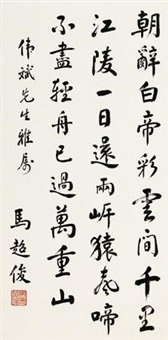 朝辭白帝彩雲間千里
江陵一日還兩岸猿聲啼
不盡輕舟已過萬重山
偉斌先生雅屬
馬超俊